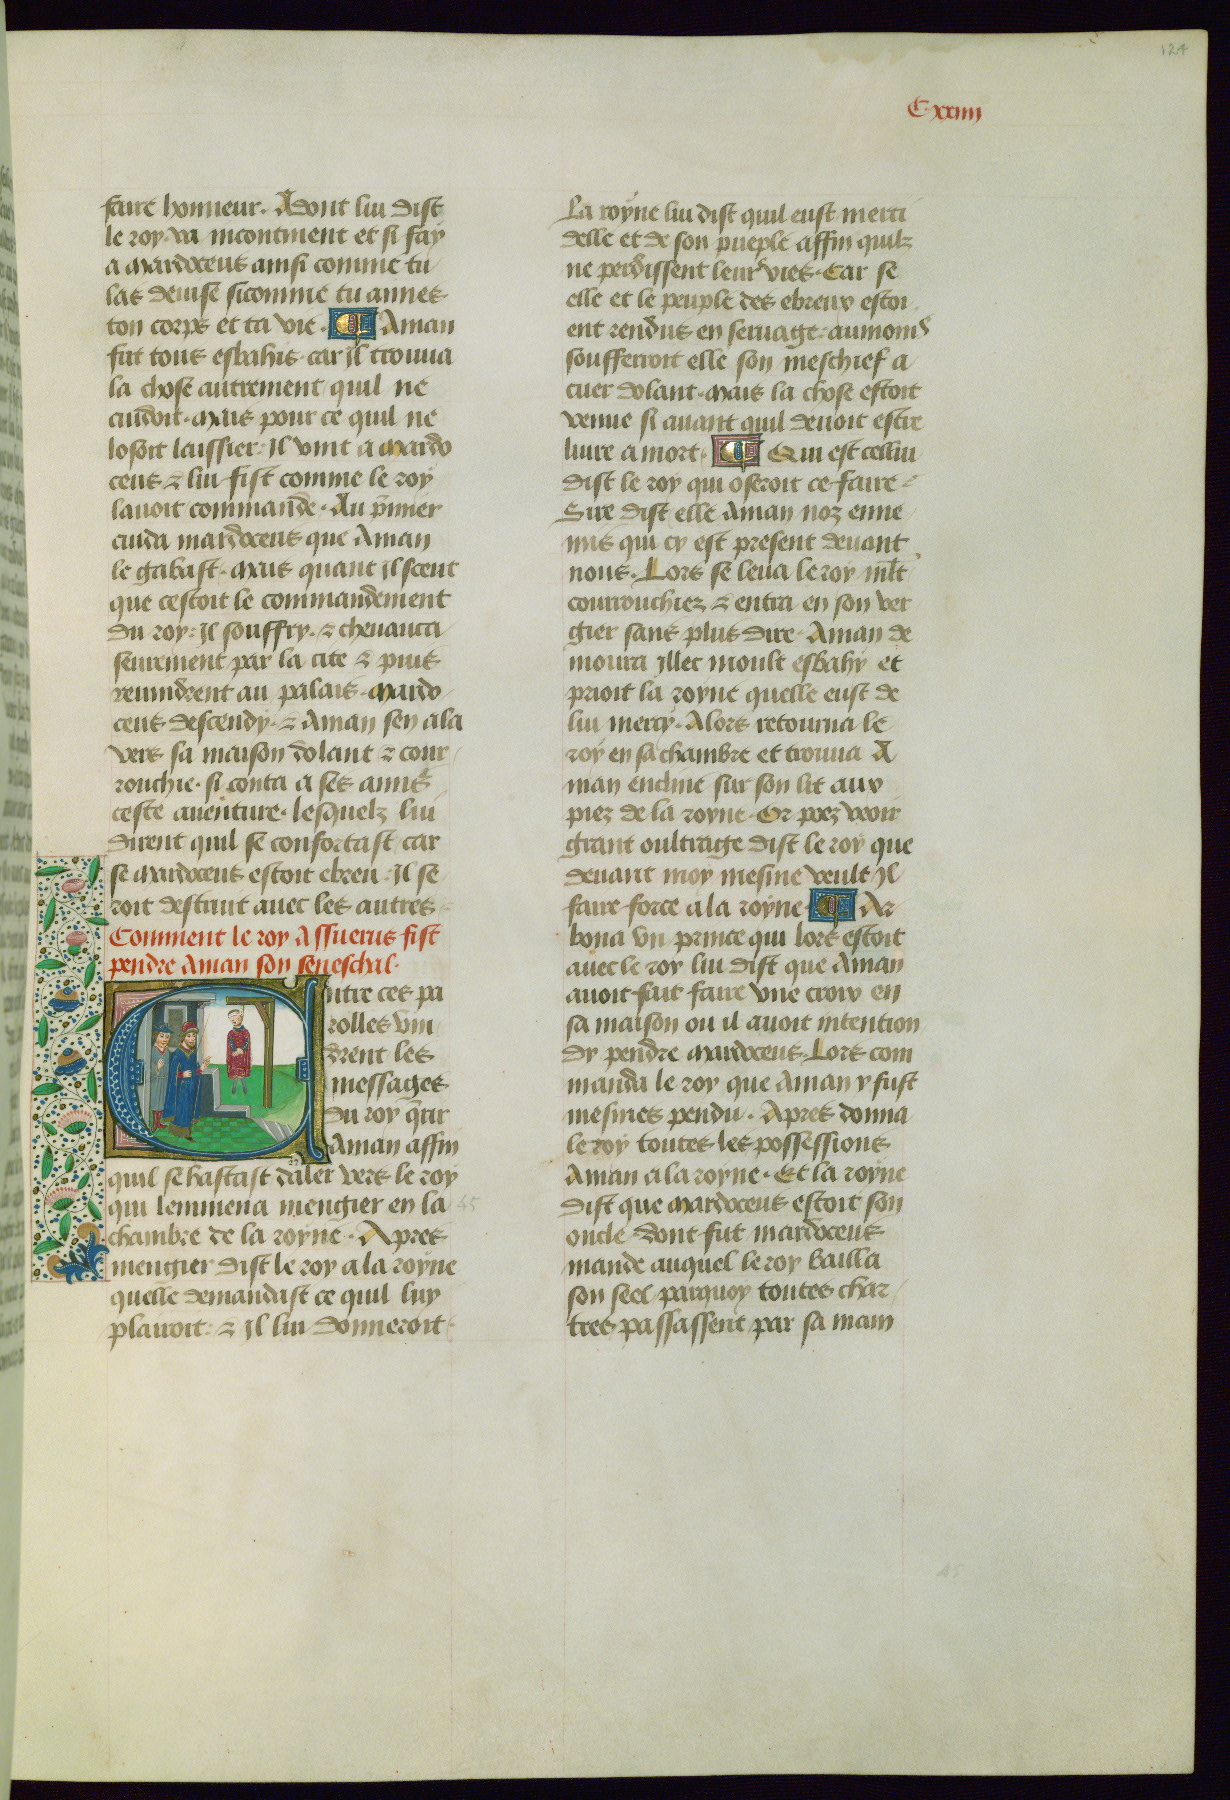 124
C.xxiiii
faire honneur. Adont lui dist
le roy. va incontinent et si fay
a mardoceus ainsi comme tu
las deuise sicomme tu aimes
ton corps et ta vie. Aman
fut tous esbahis. car il trouua
la chose autrement quil ne
cuidoit. mais pour ce quil ne
losoit laissier: il vint a mardo
ceus & lui fist comme le roy
lauoit commande. Au p̄mier
cuida mardoceus que Aman
le gabast. mais quant il sceut
que cestoit le commandement
du roy: il souffry. & cheuauca
seurement par la cite & puis
reuindrent au palais. mardo
ceus descendy. & Aman sen ala
vers sa maison dolant & cour
rouchie. si conta a ses amis
ceste auenture. lesquelz lui
dirent quil se confortast car
se mardoceus estoit ebreu: il se
roit destruit auec les autres
Comment le roy Assuerus fist
pendre Aman son seneschal.
Entre ces pa
rolles vin
drent les
messages
du roy q̄rir
Aman affin
quil se hastast daler vers le roy
qui lenmena mengier en la
chambre de la royne. Apres
mengier dist le roy a la royne
quelle demandast ce quil luy
plairoit: & il lui donneroit
La royne lui dist quil eust merci
delle et de son pueple affin quilz
ne perdissent leurs vies. Car se
elle et le peuple des ebreux estoi
ent rendus en seruage: aumoins
soufferroit elle son meschief a
cuer dolant. mais la chose estoit
venue si auant quil deuoit estre
liure a mort. Qui est cellui
dist le roy qui oseroit ce faire
Sire dist elle Aman noz enne
mis qui cy est present deuant
nous. Lors se leua le roy ml̄t
courrouchiez & entra en son ver
gier sans plus dire. Aman de
moura illec moult esbahy et
prioit la royne quelle eust de
lui mercy. Alors retourna le
roy en sa chambre et trouua A
man encline sur son lit aux
piez de la royne. Or poez veoir
grant oultrage dist le roy que
deuant moy mesme veult il
faire force a la royne. Ar
bona vn prince qui lors estoit
auec le roy lui dist que Aman
auoit fait faire vne croix en
sa maison ou il auoit intention
dy pendre mardoceus. Lors com
manda le roy que Aman y fust
mesmes pendu. Apres donna
le roy toutes les possessions
Aman a la royne. Et la royne
dist que mardoceus estoit son
oncle. dont fut mardoceus
mande auquel le roy bailla
son seel. parquoy toutes char
tres passassent par sa main
45